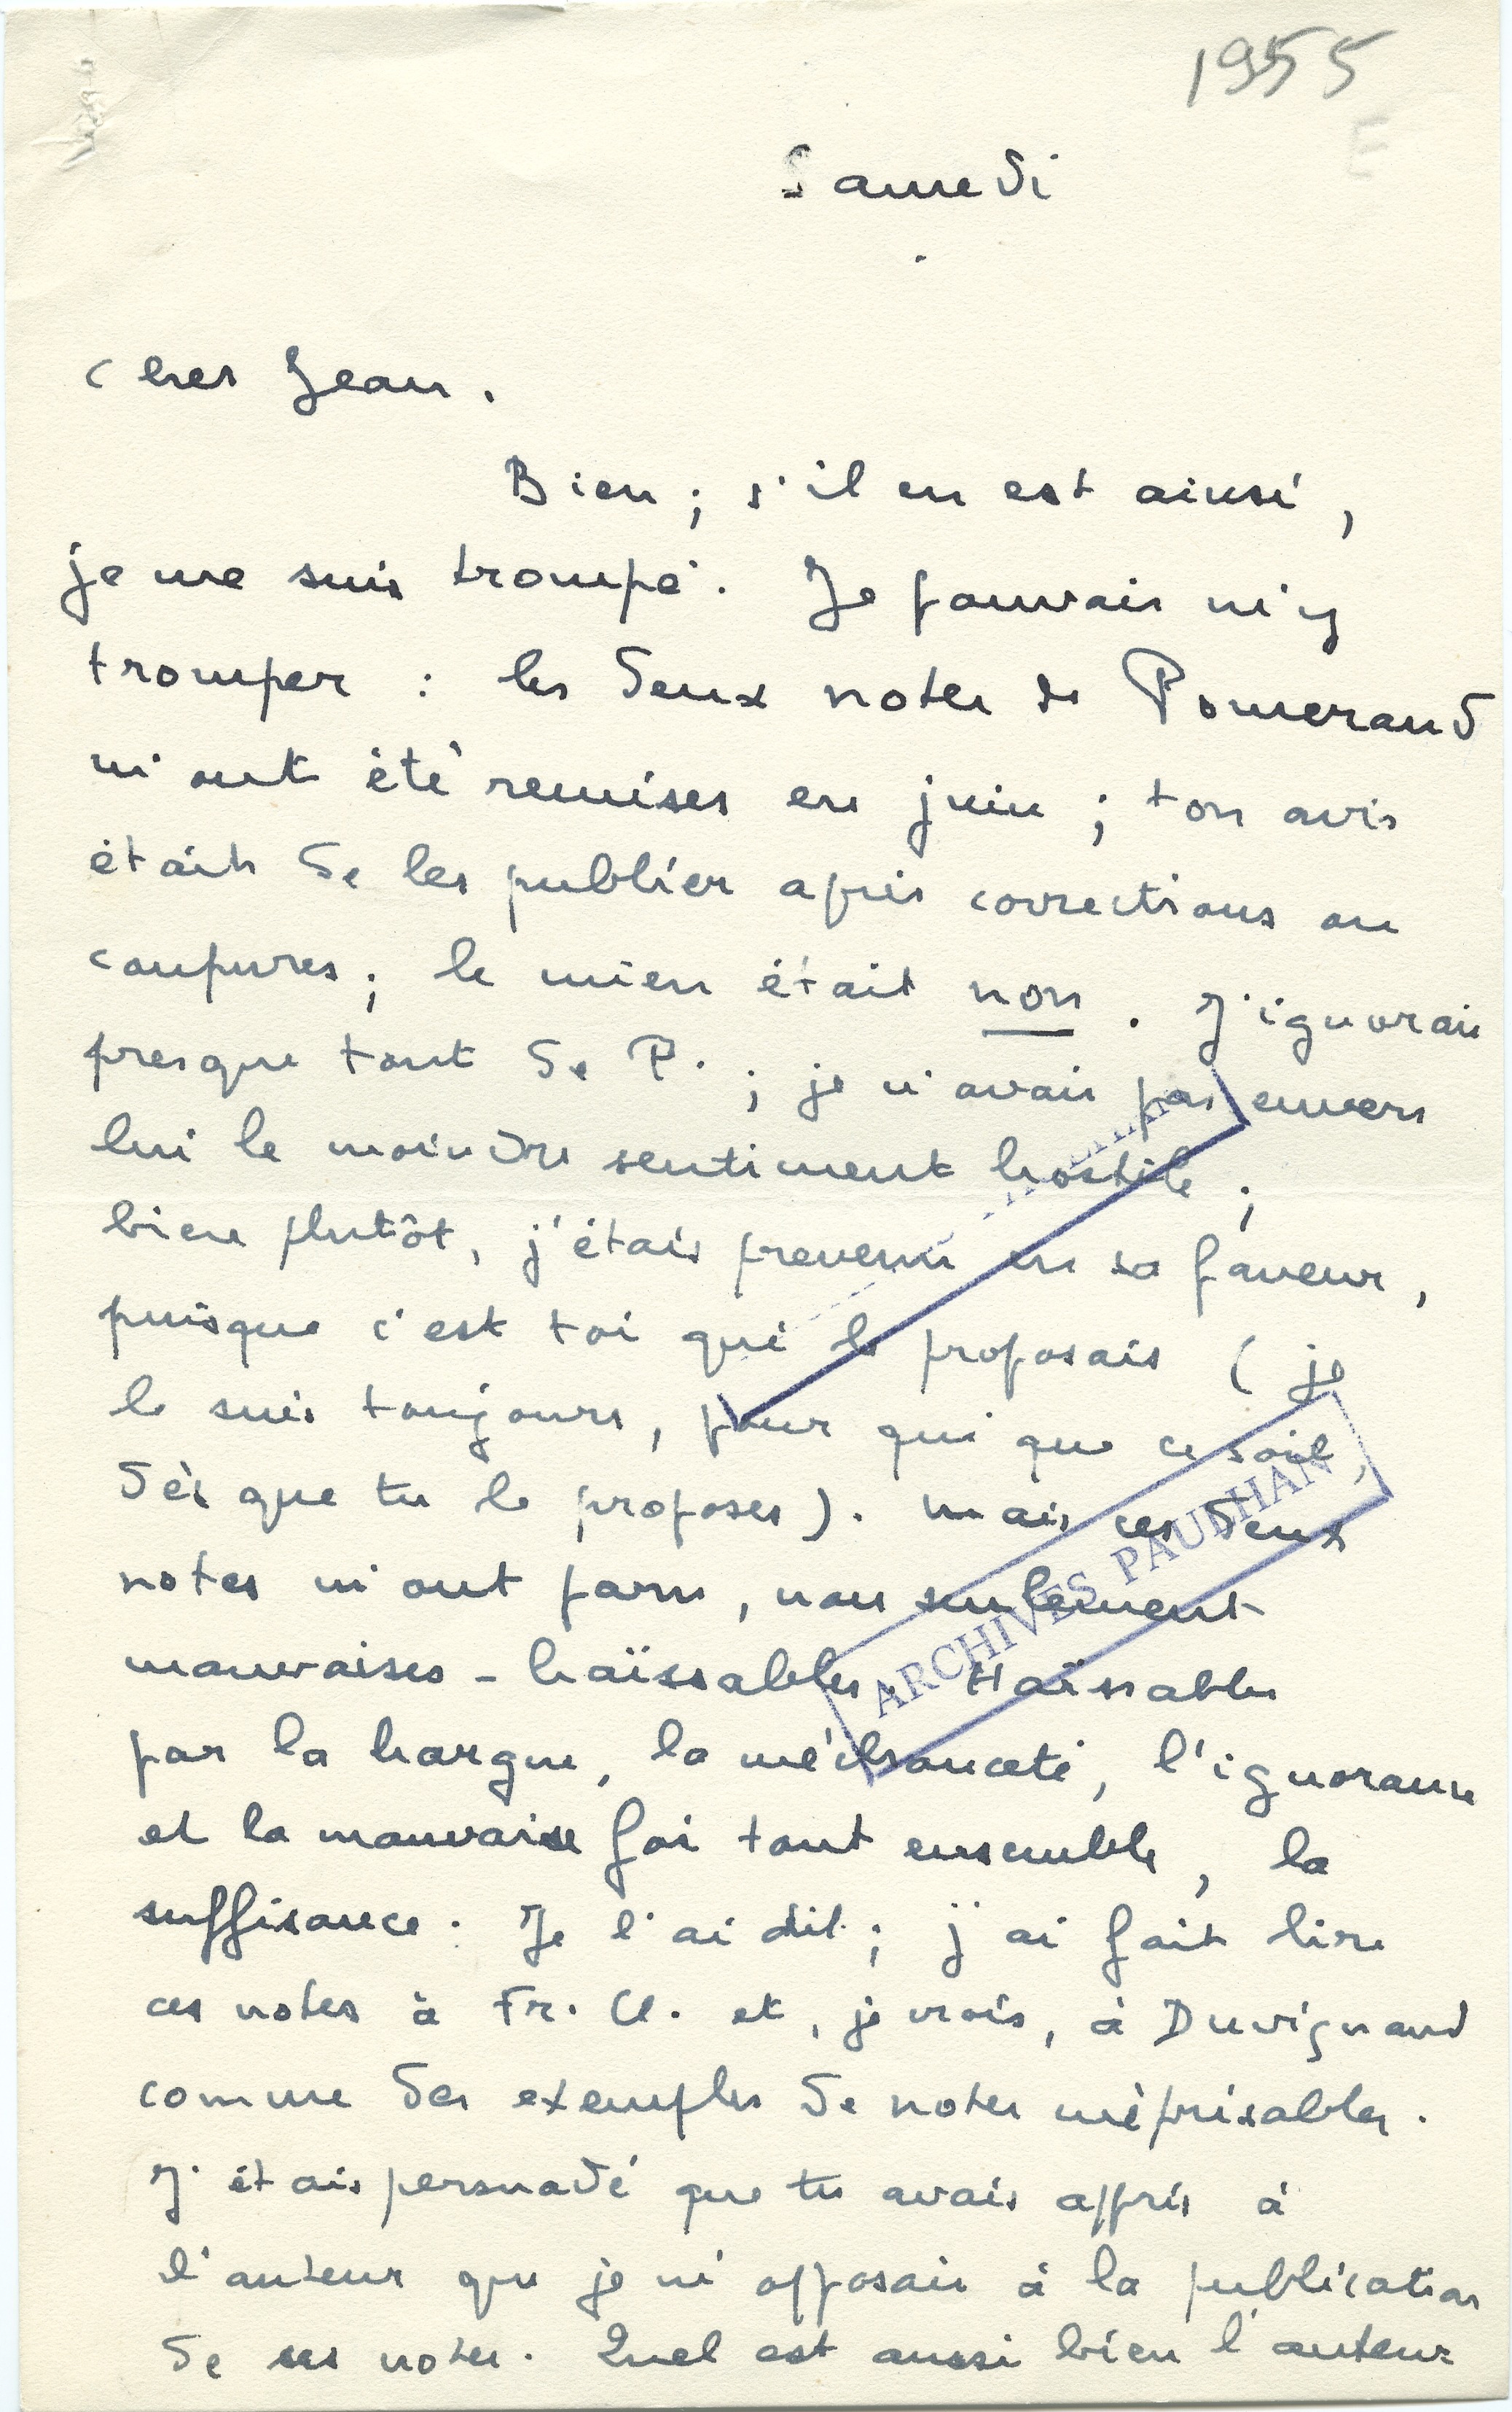 1955
E
Samedi
Cher Jean.
Bien ; s'il en est ainsi,
je me suis trompé. Je pouvais m'y
tromper : les deux notes de Pomerand
m'ont été remises en juin ; ton avis
était de les publier après corrections ou
coupures ; le mien était non. J'ignorais
presque tout de P. ; je n'avais pas envers
lui le moindre sentiment hostile ;
bien plutôt, j'étais prevenu en sa faveur,
puisque c'est toi qui le proposais (je
le suis toujours, pour qui que ce soit,
dès que tu le proposes). Mais ces deux
notes m'ont paru, non seulement
mauvaises - haïssables. Haïssables
par la hargne, la méchanceté, l'ignorance
et la mauvaise foi tout ensemble, la
suffisance. Je l'ai dit ; j'ai fait lire
ces notes à Fr. Cl. et, je crois, à Duvignaud
comme des exemples de notes méprisables.
J'étais persuadé que tu avais appris à
l'auteur que je m'opposais à la publication
de ses notes. Quel est aussi bien l'auteur
ARCHIVES PAULHAN